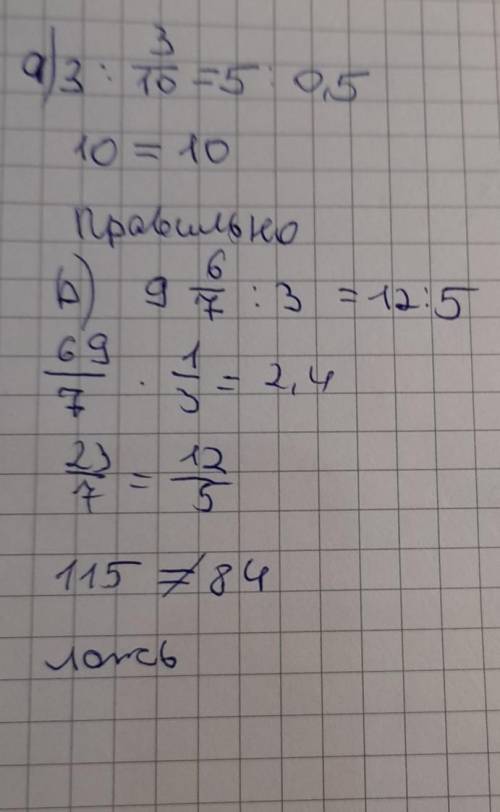 а) 3 : 3/10 = 5 : 0,5
10 = 10
правильно
б) 9 6/7 : 3 = 12 : 5
69/7 · 1/3 = 2,4
23/7 = 12/5
115 ≠ 84
ложь